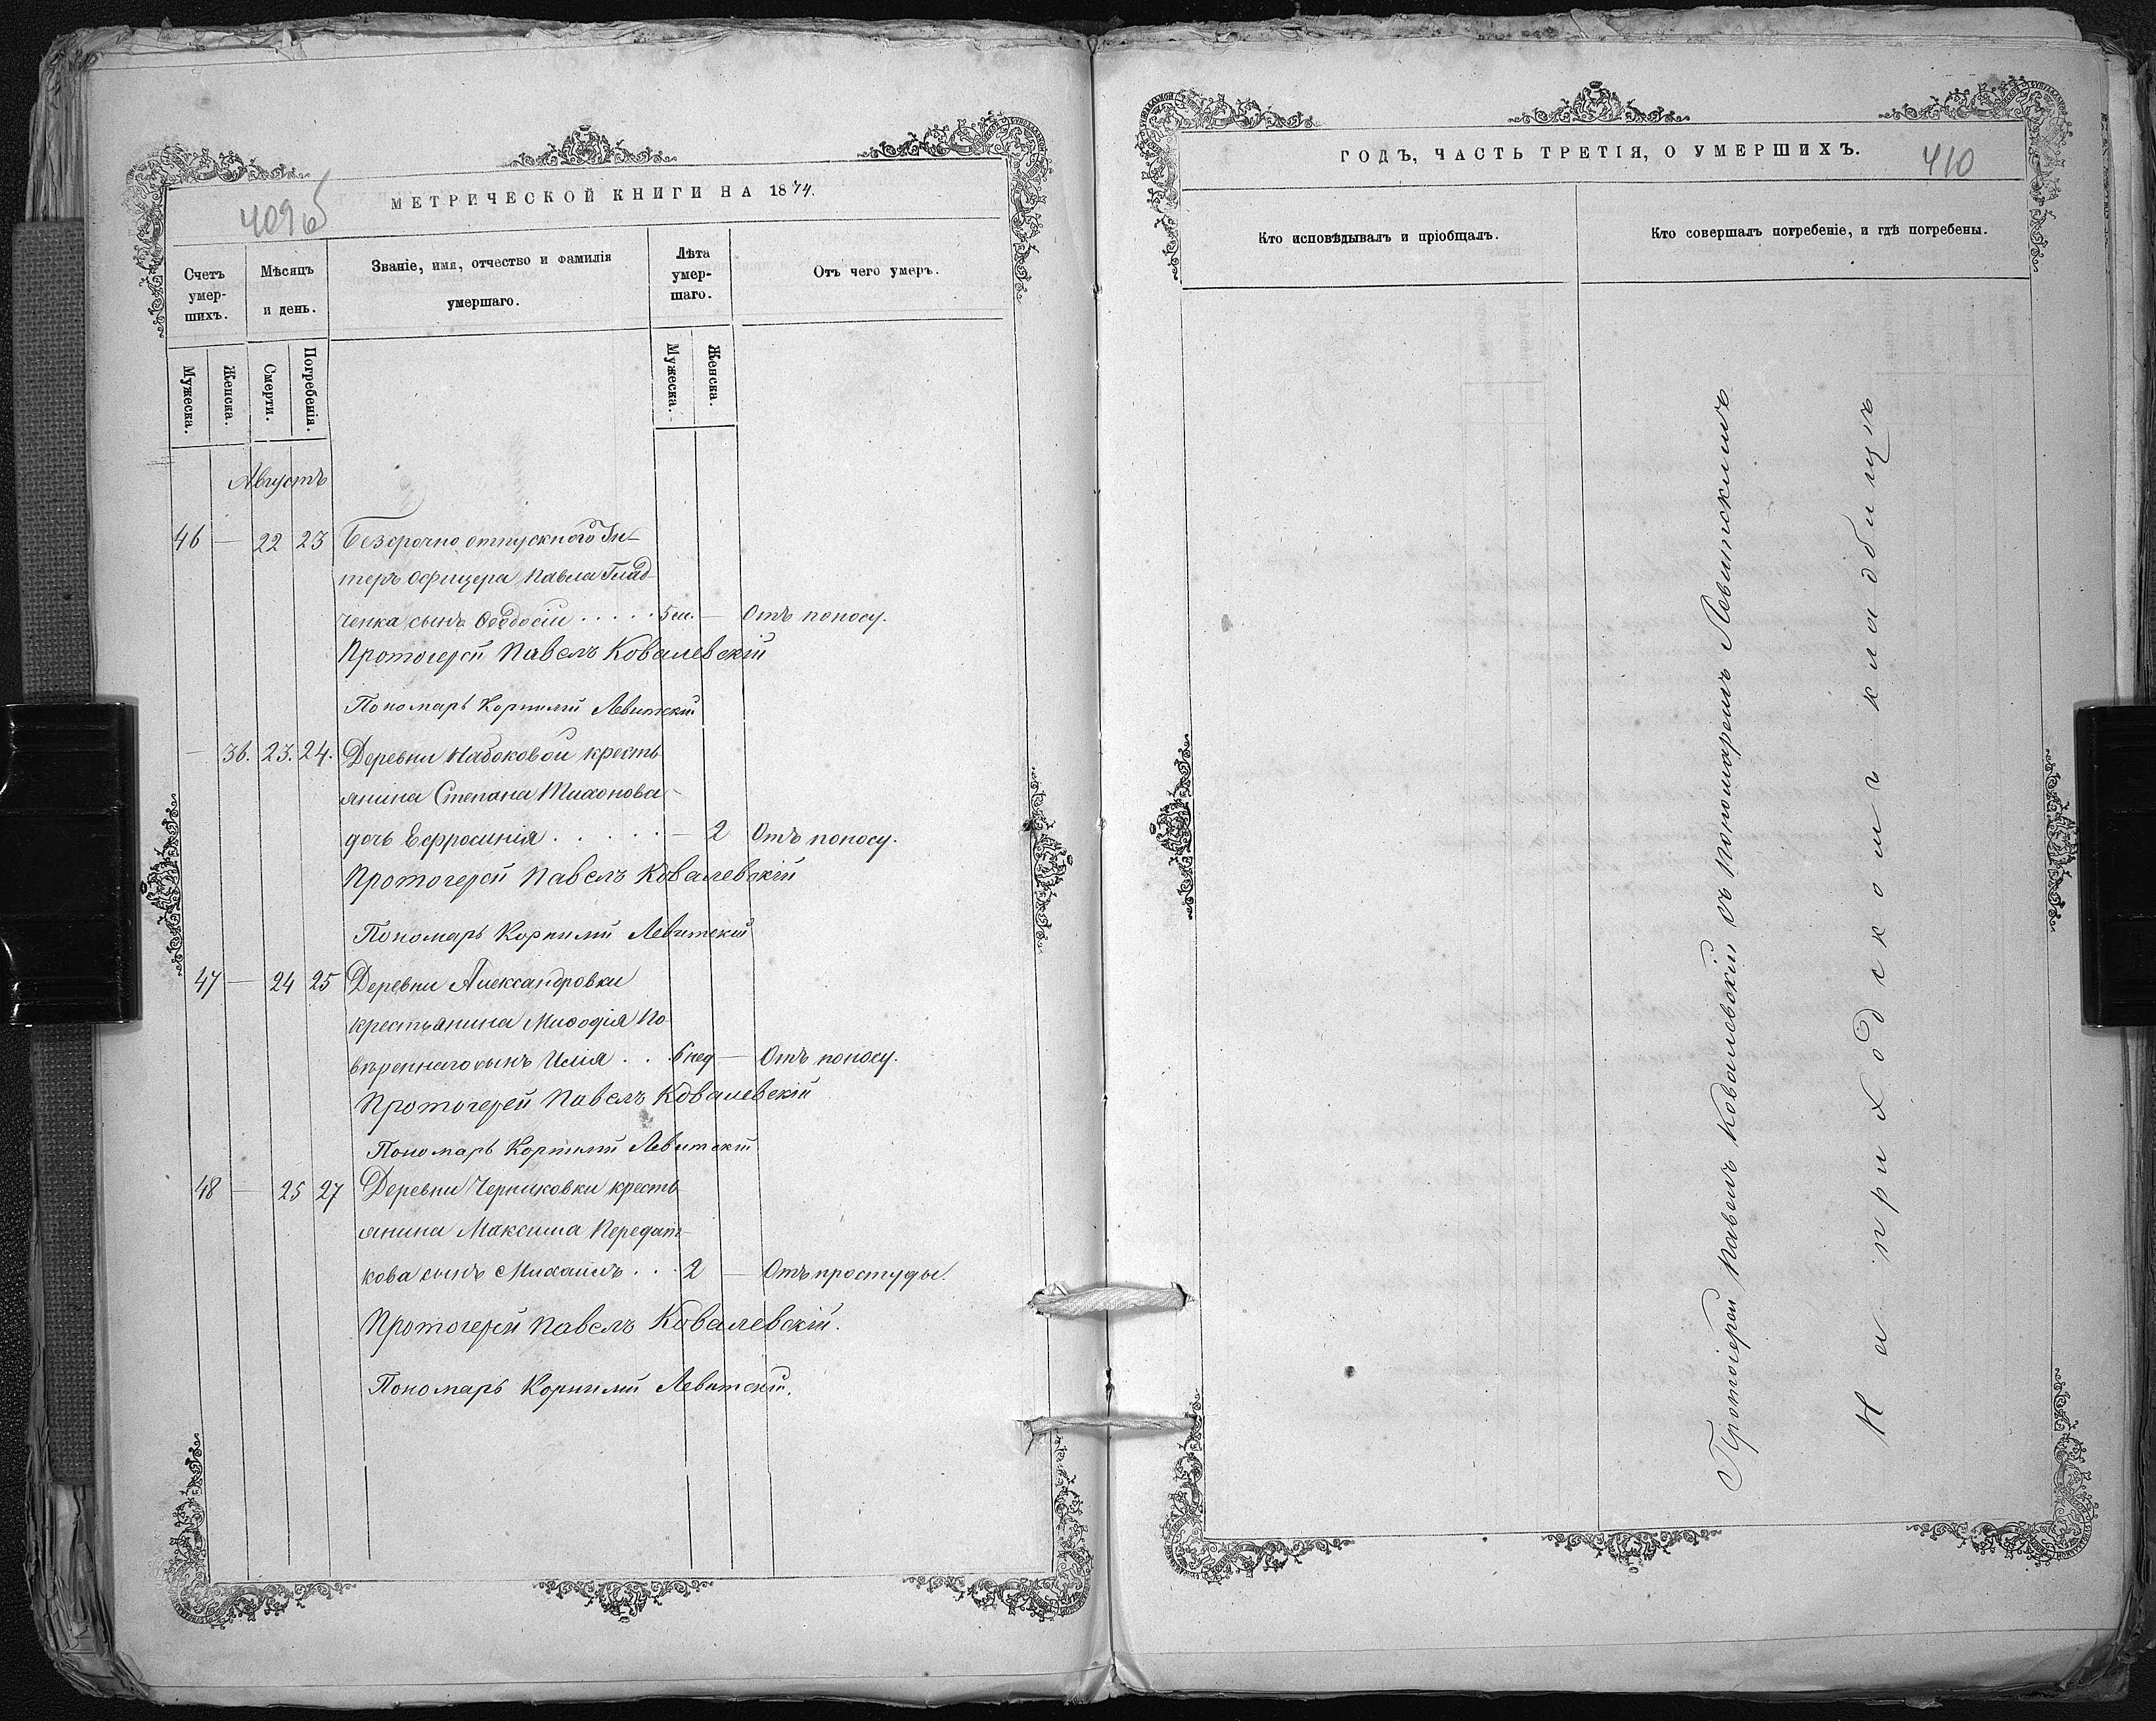 МЕТРИЧЕСКОЙ КНИГИ НА 1874.
409б
Счетъ умершихъ.
Мѣсяцъ и день.
Званіе, имя, отчество и фамилія умершаго.
Лѣта умершаго.
Отъ чего умеръ.
Мужеска.
Женска.
Смерти.
Погребенія.
Мужеска.
Женска.
Августъ
46 — 22 23 Безсрочно отпускного Ун-
теръ Офицера Павла Глад-
ченка сынъ Ѳеодосій . . . . . 5 м. — Отъ поносу.
Протоіерей Павелъ Ковалевскій
Пономарь Корнилій Левитскій
— 36. 23. 24. Деревни Набоковой кресть-
янина Степана Тихонова
дочь Ефросинія . . . . . . — 2 Отъ поносу.
Протоіерей Павелъ Ковалевскій
Пономарь Корнилій Левитскій
47 — 24 25 Деревни Александровки
крестьянина Миѳодія По-
вѣреннаго сынъ Илія . . . 6 нед — Отъ поносу.
Протоіерей Павелъ Ковалевскій
Пономарь Корнилій Левитскій
48 — 25 27 Деревни Черняковки кресть-
янина Максима Передат-
кова сынъ Михаилъ . . . 2 — Отъ простуды.
Протоіерей Павелъ Ковалевскій.
Пономарь Корнилій Левитскій.
ГОДЪ, ЧАСТЬ ТРЕТІЯ, О УМЕРШИХЪ.
410
Кто исповѣдывалъ и пріобщалъ.
Кто совершалъ погребеніе, и гдѣ погребены.
Протоіерей Павелъ Ковалевскій съ пономаремъ Левитскимъ
На приходскомъ кладбищѣ